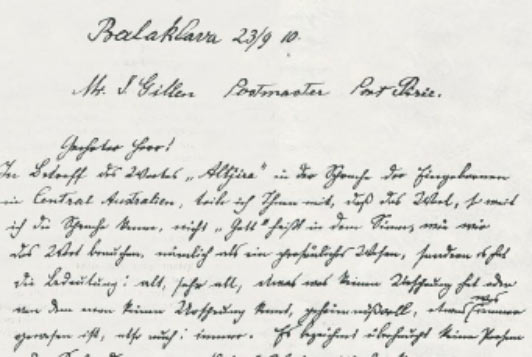 Balaklava 23/9 10.
Mr. F. Gillen Postmaster Port Pirie.
Geehrter Herr!
In Betreff des Wortes „Altjira" in der Sprache der Eingebornen
in Central Australien, teile ich Ihnen mit, daß das Wort, so weit
ich die Sprache kenne, nicht „Gott" heißt in dem Sinne, wie wir
das Wort brauchen, nämlich als ein persönliches Wesen, sondern es hat
die Bedeutung: alt, sehr alt, etwas was keinen Ursprung hat oder
von dem man keinen Ursprung kennt, geheimnißvoll, etwas was immer
gewesen ist, also auch: immer. Es bezeichnet überhaupt keine Person